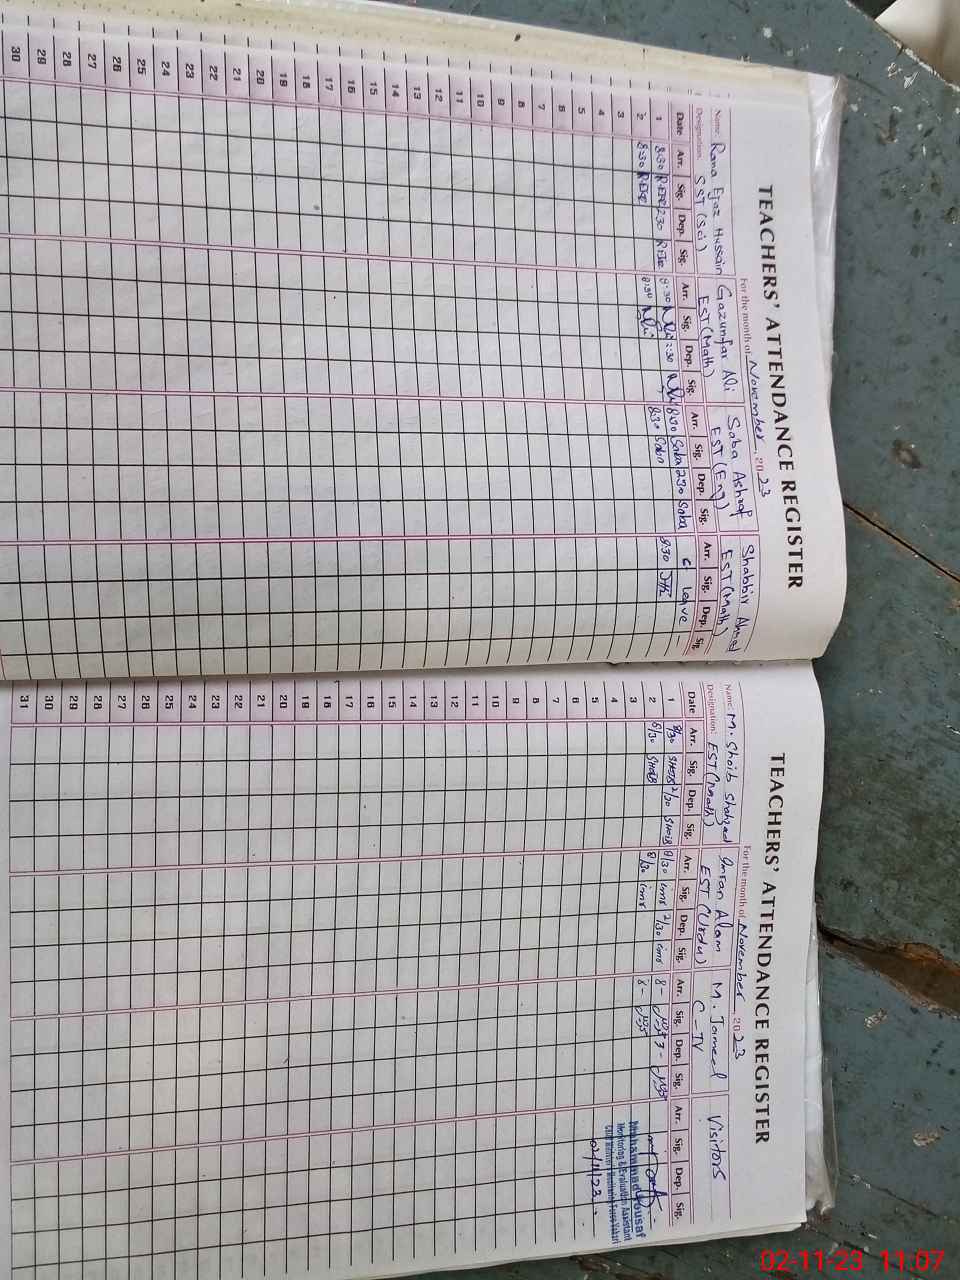 TEACHERS' ATTENDANCE REGISTER
For the month of November, 2023
Name: Rana Ejaz Hussain Gazunfar Ali Saba Ashraf Shabbir Ahmad
Designation: SST (Sci) EST (Math) EST (Eng) EST (Math)
Date Arr. Sig. Dep. Sig. Arr. Sig. Dep. Sig. Arr. Sig. Dep. Sig. Arr. Sig. Dep. Sig.
1 8:30 2:30 8:30 2:30 8:30 Saba 2:30 Saba C leave
2 8:30 8:30 8:30 Saba 8:30
3
4
5
6
7
8
9
10
11
12
13
14
15
16
17
18
19
20
21
22
23
24
25
26
27
28
29
30
TEACHERS' ATTENDANCE REGISTER
For the month of November, 2023
Name: M. Shoib Shahzad Imran Alam M. Jameel Visitors
Designation: EST (Math) EST (Urdu) C-IV
Date Arr. Sig. Dep. Sig. Arr. Sig. Dep. Sig. Arr. Sig. Dep. Sig. Arr. Sig. Dep. Sig.
1 8/30 SHOIB 2/30 SHOIB 8/30 imr 2/30 imr 8- 3-
2 8/30 SHOIB 8/30 imr 8-
3
4
5
6
7
8
9
10
11
12
13
14
15
16
17
18
19
20
21
22
23
24
25
26
27
28
29
30
31
Muhammad Yousaf
Monitoring & Evaluation Assistant
Chief Minister's Monitoring Force Vehari
02/11/23
02-11-23 11:07